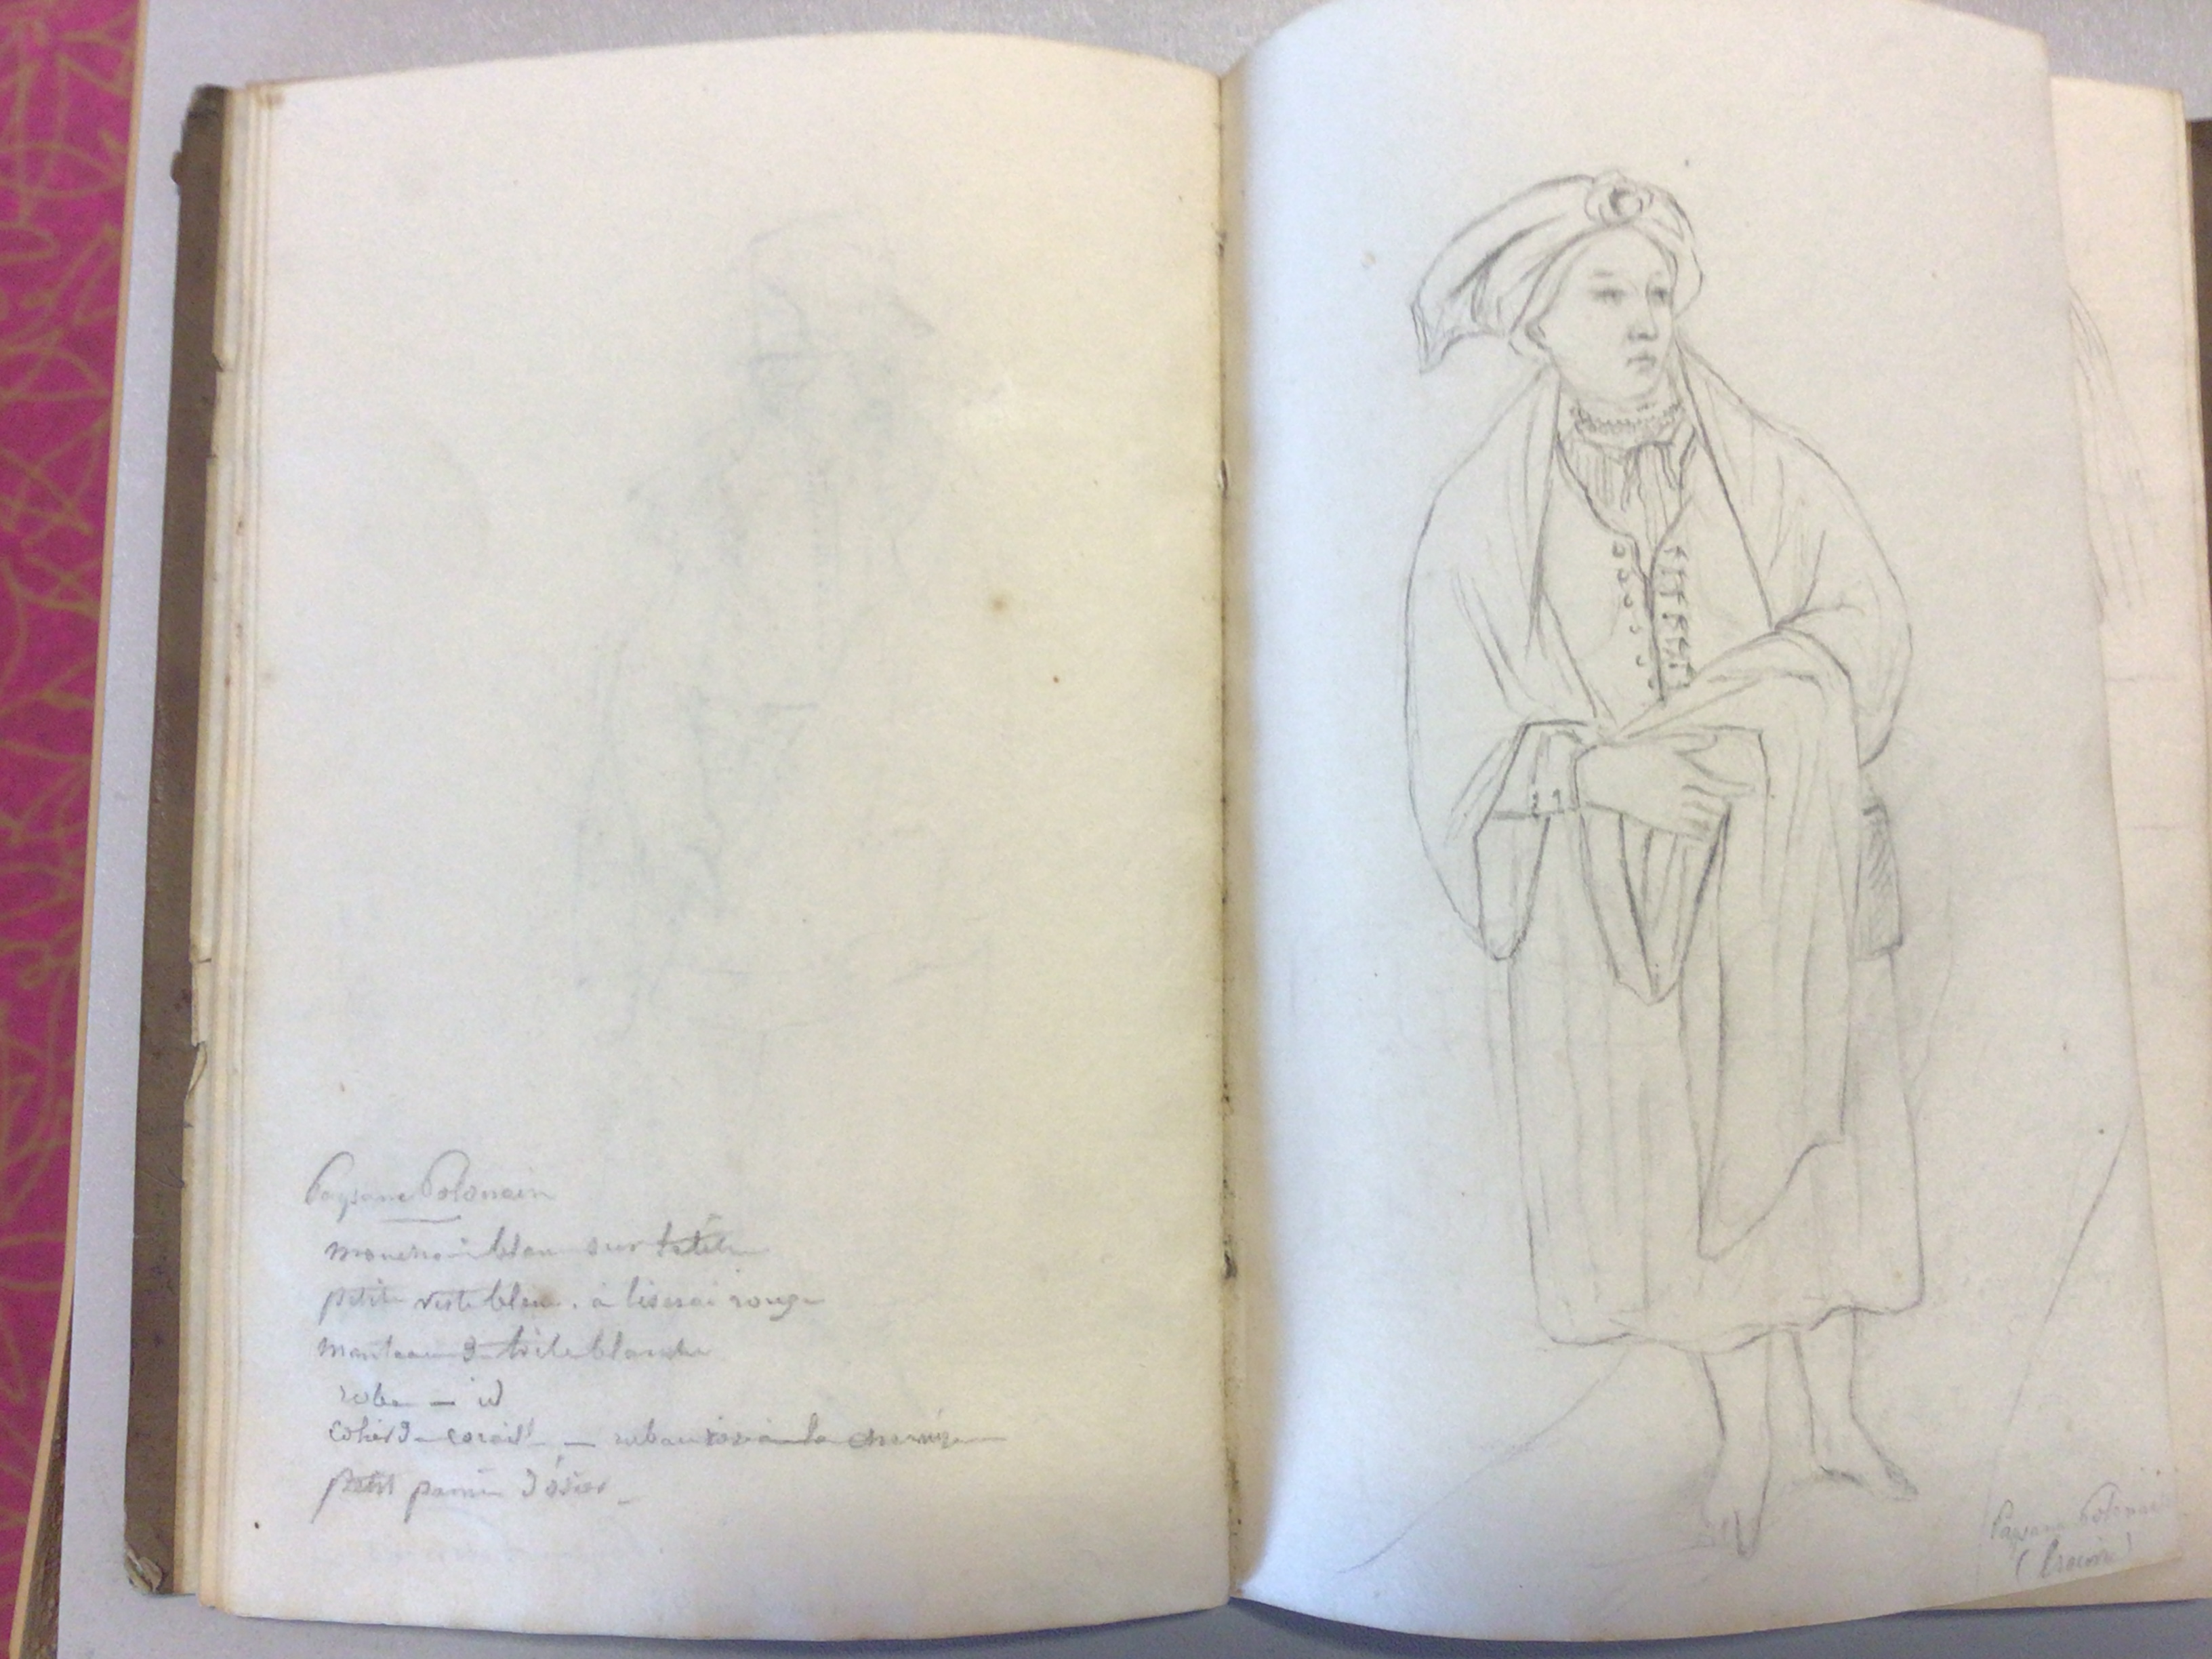 Paysanne Polonaise
mouchoir blanc sur la tête
petite veste bleue. à liserai rouge
manteau de toile blanche
robe — id
collier de corail — ruban rose à la chemise
petit panier d'osier —
Paysanne Polonaise